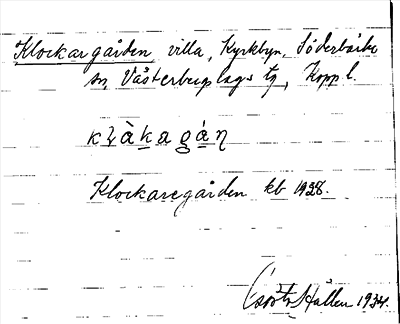 Klockargården, villa, Kyrkbyn, Söderbärke
sn, Västerbergslags tg, Kopp l.
Klockaregården kb 1928.
Hållen 1934.